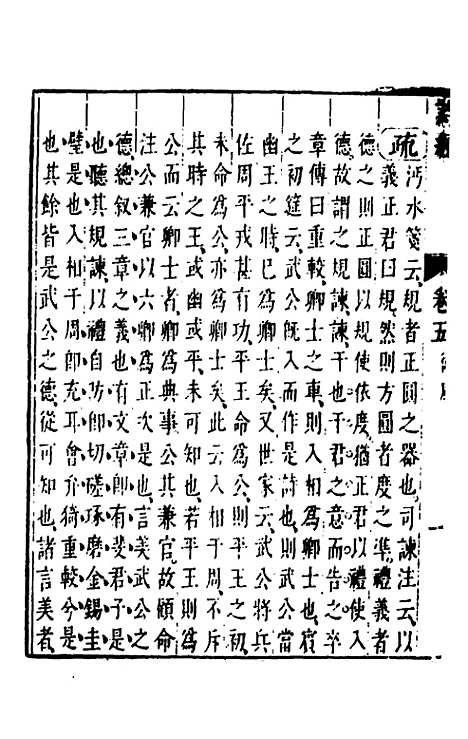 詩經
卷五
疏沔水箋云規者正圓之器也司諫注云以
義正君曰規然則方圓者度之準禮義者
德之則正圓以規使依度猶正君以禮使入
德故謂之規諫諫干也干君之意而告之卒
章傳曰重較卿士之車則入相爲卿士也賓
之初筵云武公旣入而作是詩也則武公當
幽王之時已爲卿士矣又世家云武公將兵
佐周平戎甚有功平王命爲公則平王之初
未命爲公亦爲卿士矣此云入相于周不斥
其時之王或幽或平未可知也若平王則爲
公而云卿士者卿爲典事公其兼官故顧命
注公兼官以六卿爲正次是也言美武公之
德總叙三章之義也有文章卽有斐君子是
也聽其規諫以禮自防卽切磋琢磨金錫圭
璧是也入相于周卽充耳會弁猗重較兮是
也其餘皆是武公之德從可知也諸言美者